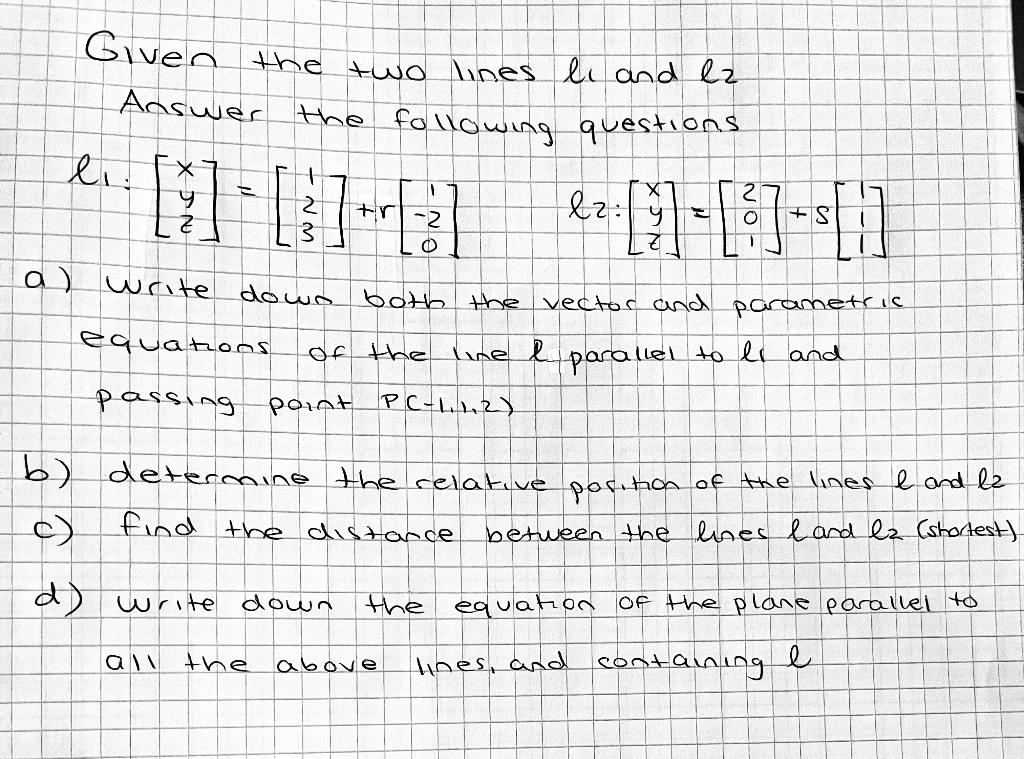 Given the two lines l1 and l2
Answer the following questions
l1: [x y z] = [1 2 3] + r[1 -2 0] l2: [x y z] = [2 0 1] + s[1 1 1]
a) write down both the vector and parametric
equations of the line l parallel to l1 and
passing point P(-1,1,2)
b) determine the relative position of the lines l and l2
c) find the distance between the lines l and l2 (shortest)
d) write down the equation of the plane parallel to
all the above lines, and containing l